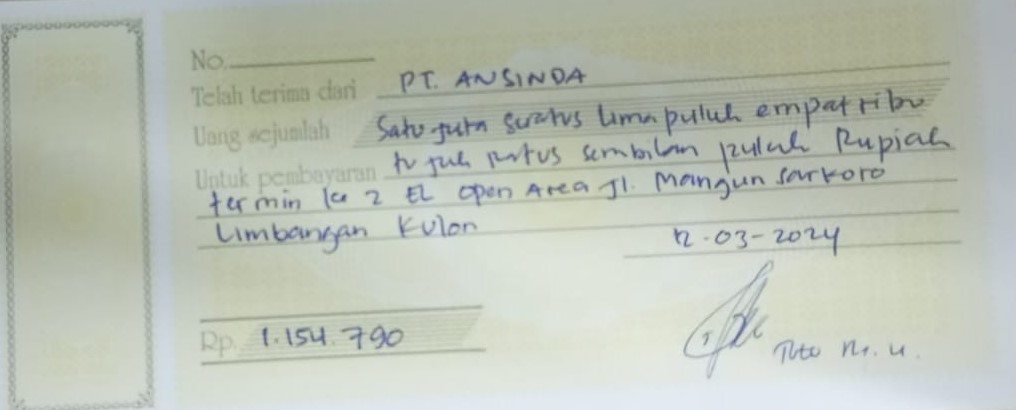 No.
Telah terima dari PT. ANSINDA
Uang sejumlah Satu juta seratus lima puluh empat ribu
tujuh ratus sembilan puluh Rupiah
Untuk pembayaran
termin ke 2 EL open Area Jl. Mangun sarkoro
Limbangan Kulon
12-03-2024
Rp. 1.154.790